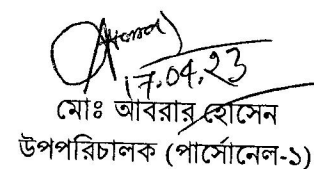 17.04.23
মোঃ আবরার হোসেন
উপপরিচালক (পার্সোনেল-১)